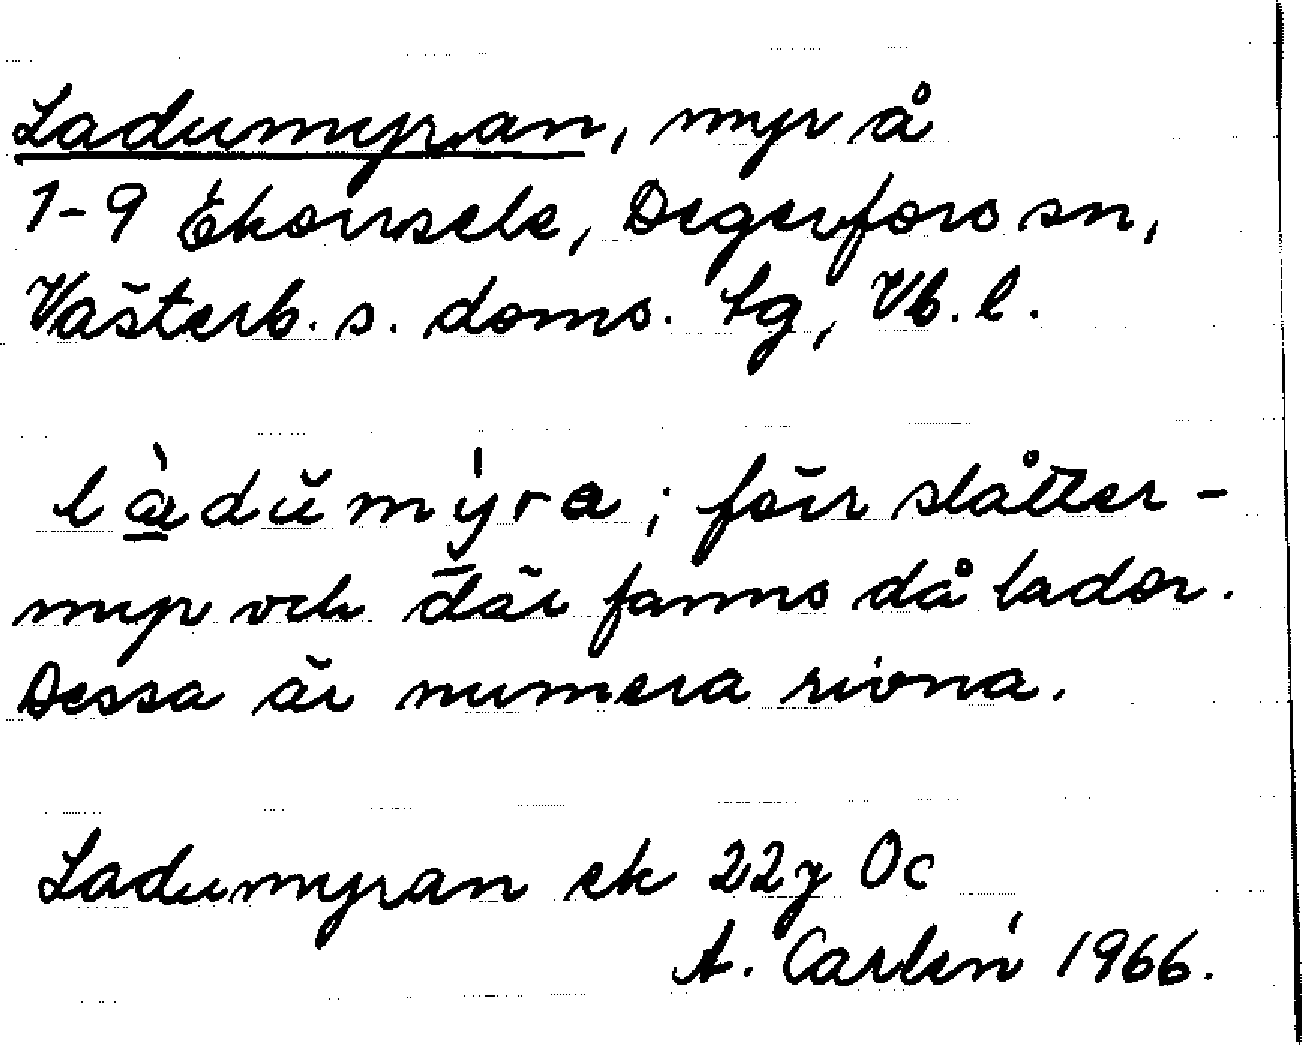 Ladumyran, myr å
1-9 Ekorrsele, Degerfors sn,
Västerb. s. doms. tg, Vb. l.
làdŭmýra; förr slåtter-
myr och där fanns då lador.
Dessa är numera rivna.
Ladumyran ek 22y Oc
A. Carlén 1966.